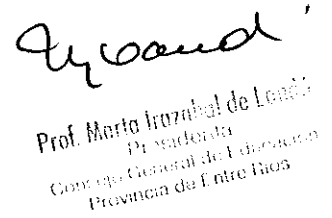 Prof. Marta Irazabal de Landó
Presidenta
Consejo General de Educación
Provincia de Entre Rios